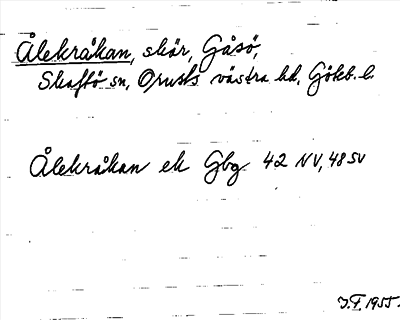 Ålekråkan, skär, Gåsö,
Skaftö sn, Orusts västra hd, Göteb. l.
Ålekråkan ek Gbg 42 NV, 48 SV
J.F. 1955.